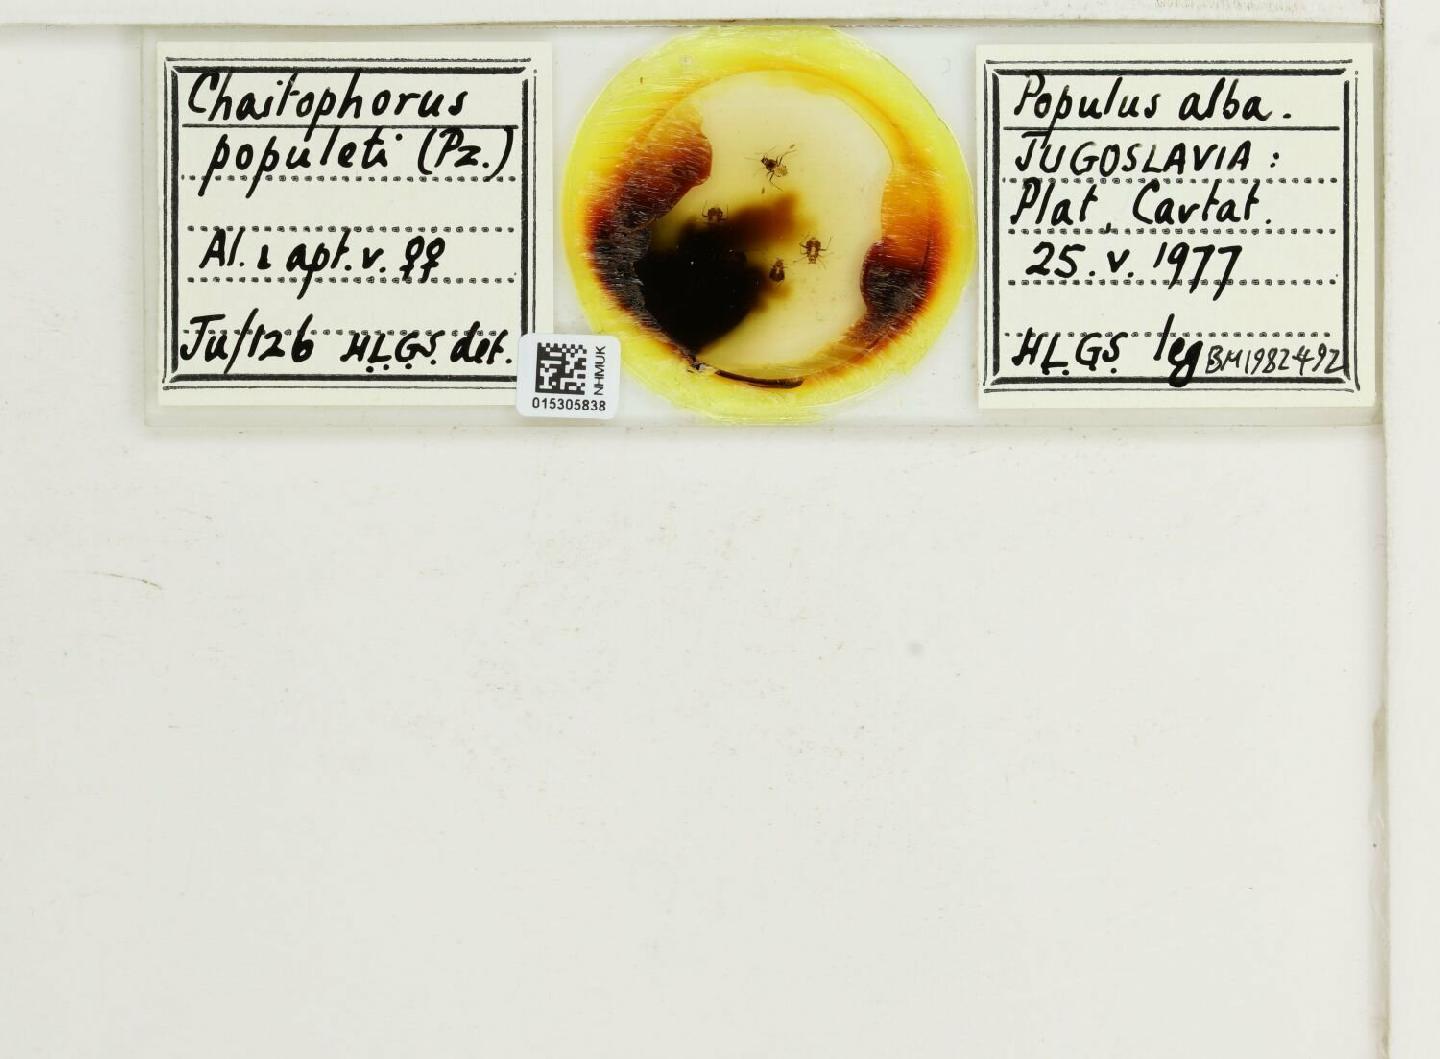 Chaitophorus
populeti (Pz.)
Al. & apt. v. ♀♀
Ju/126 H.L.G.S. det.
NHMUK
015305838
Populus alba.
JUGOSLAVIA:
Plat, Cavtat.
25. v. 1977
H.L.G.S. leg BM1982-492